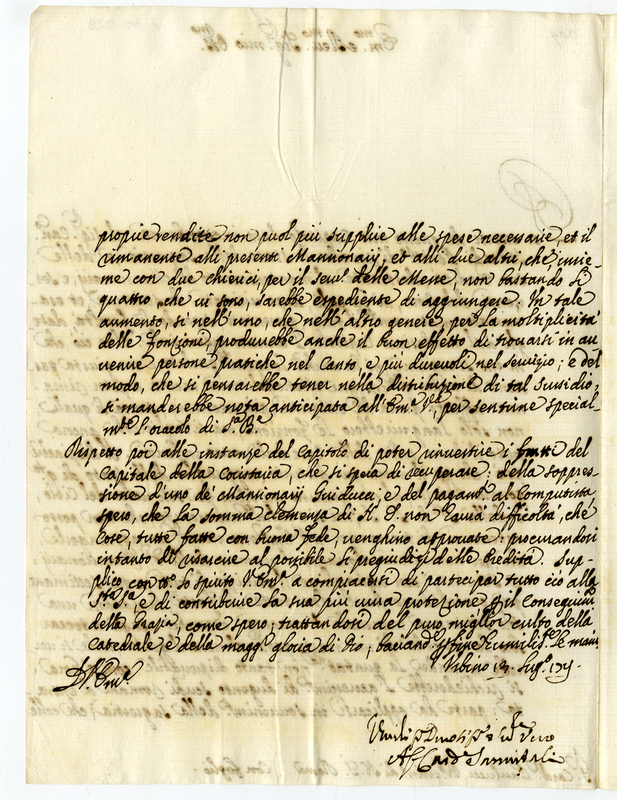 proprie rendite non puol più supplire alle spese necessarie, et il
rimanente alli presenti Mansionarij, et alli due altri, che insie-
me con due chierici, per il serv.º delle Messe, non bastando li
quattro, che vi sono, sarebbe espediente di aggiungere. In tale
aumento, si nell'uno, che nell'altro genere, per la moltiplicità
delle fonzioni, produrrebbe anche il buon effetto di trovarsi in av
venire persone pratiche nel Canto, e più durevoli nel servizio; e del
modo, che si pensarebbe tener nella distribuzione di tal sussidio,
si manderebbe nota anticipata all'Em.ª V.ra, per sentirne special-
m.te l'oracolo di S.ª B.ne
Rispetto poi alle instanze del Capitolo di poter rinvestire i frutti del
Capitale della Coristaria, che si spera di recuperare: della soppres-
sione d'uno de' Mansionarij Guiducci, e del pagam.to al Computista
spero, che la somma clemenza di N. S. non havrà difficoltà, che
cose, tutte fatte con buona fede, venghino approvate: procurandosi
intanto di risarcire al possibile li pregiudizi delle Eredità. Sup-
plico con tt.º lo spirito V. Em.ª a compiacersi di partecipar tutto ciò alla
S.tà S.ª, e di contribuire la sua più viva protezione p il conseguim.to
della grazia, come spero; trattandosi del puro, miglior culto della
Catedrale, e della magg.r gloria di Dio; baciando p fine humilis.te le mani
Urbino 13. Lug.º
D. V. Em.ª
Umiliss.º Devotiss.º e Serv. Vero
A. Card. Sanvitali